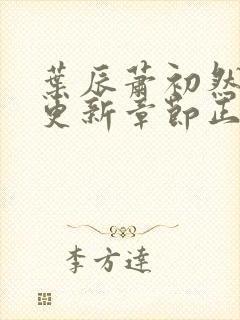 葉辰蕭初然
更新章節正
李方達